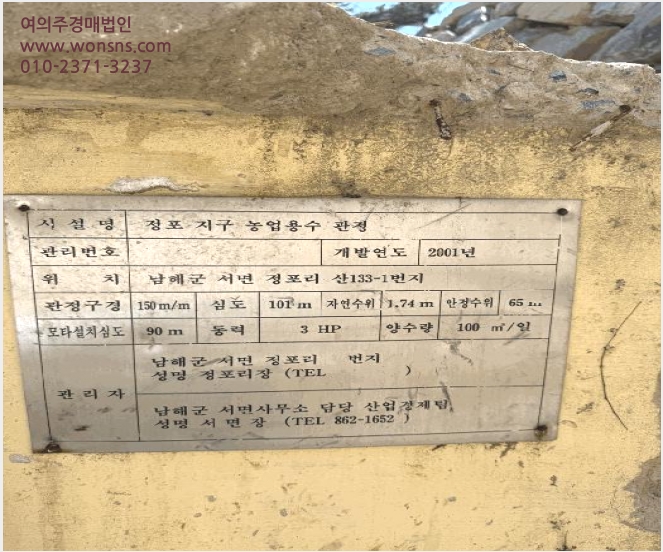 여의주경매법인
www.wonsns.com
010-2371-3237
시 설 명 정포 지구 농업용수 관정
관리번호 개발연도 2001년
위 치 남해군 서면 정포리 산133-1번지
관정구경 150m/m 심도 101 m 자연수위 1.74 m 안정수위 65 m
모타설치심도 90 m 동력 3 HP 양수량 100 ㎥/일
남해군 서면 정포리 번지
성명 정포리장 (TEL )
관 리 자
남해군 서면사무소 담당 산업경제팀
성명 서 면 장 (TEL 862-1652 )